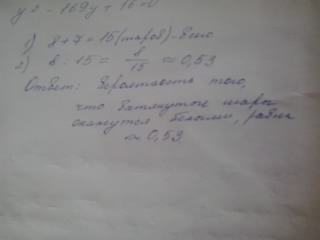 1) 8+7=15 (шаров) - всего
2) 8 : 15 = 8/15 ≈ 0,53
Ответ: Вероятность того,
что вытянутые шары
окажутся белыми, равна
≈ 0,53